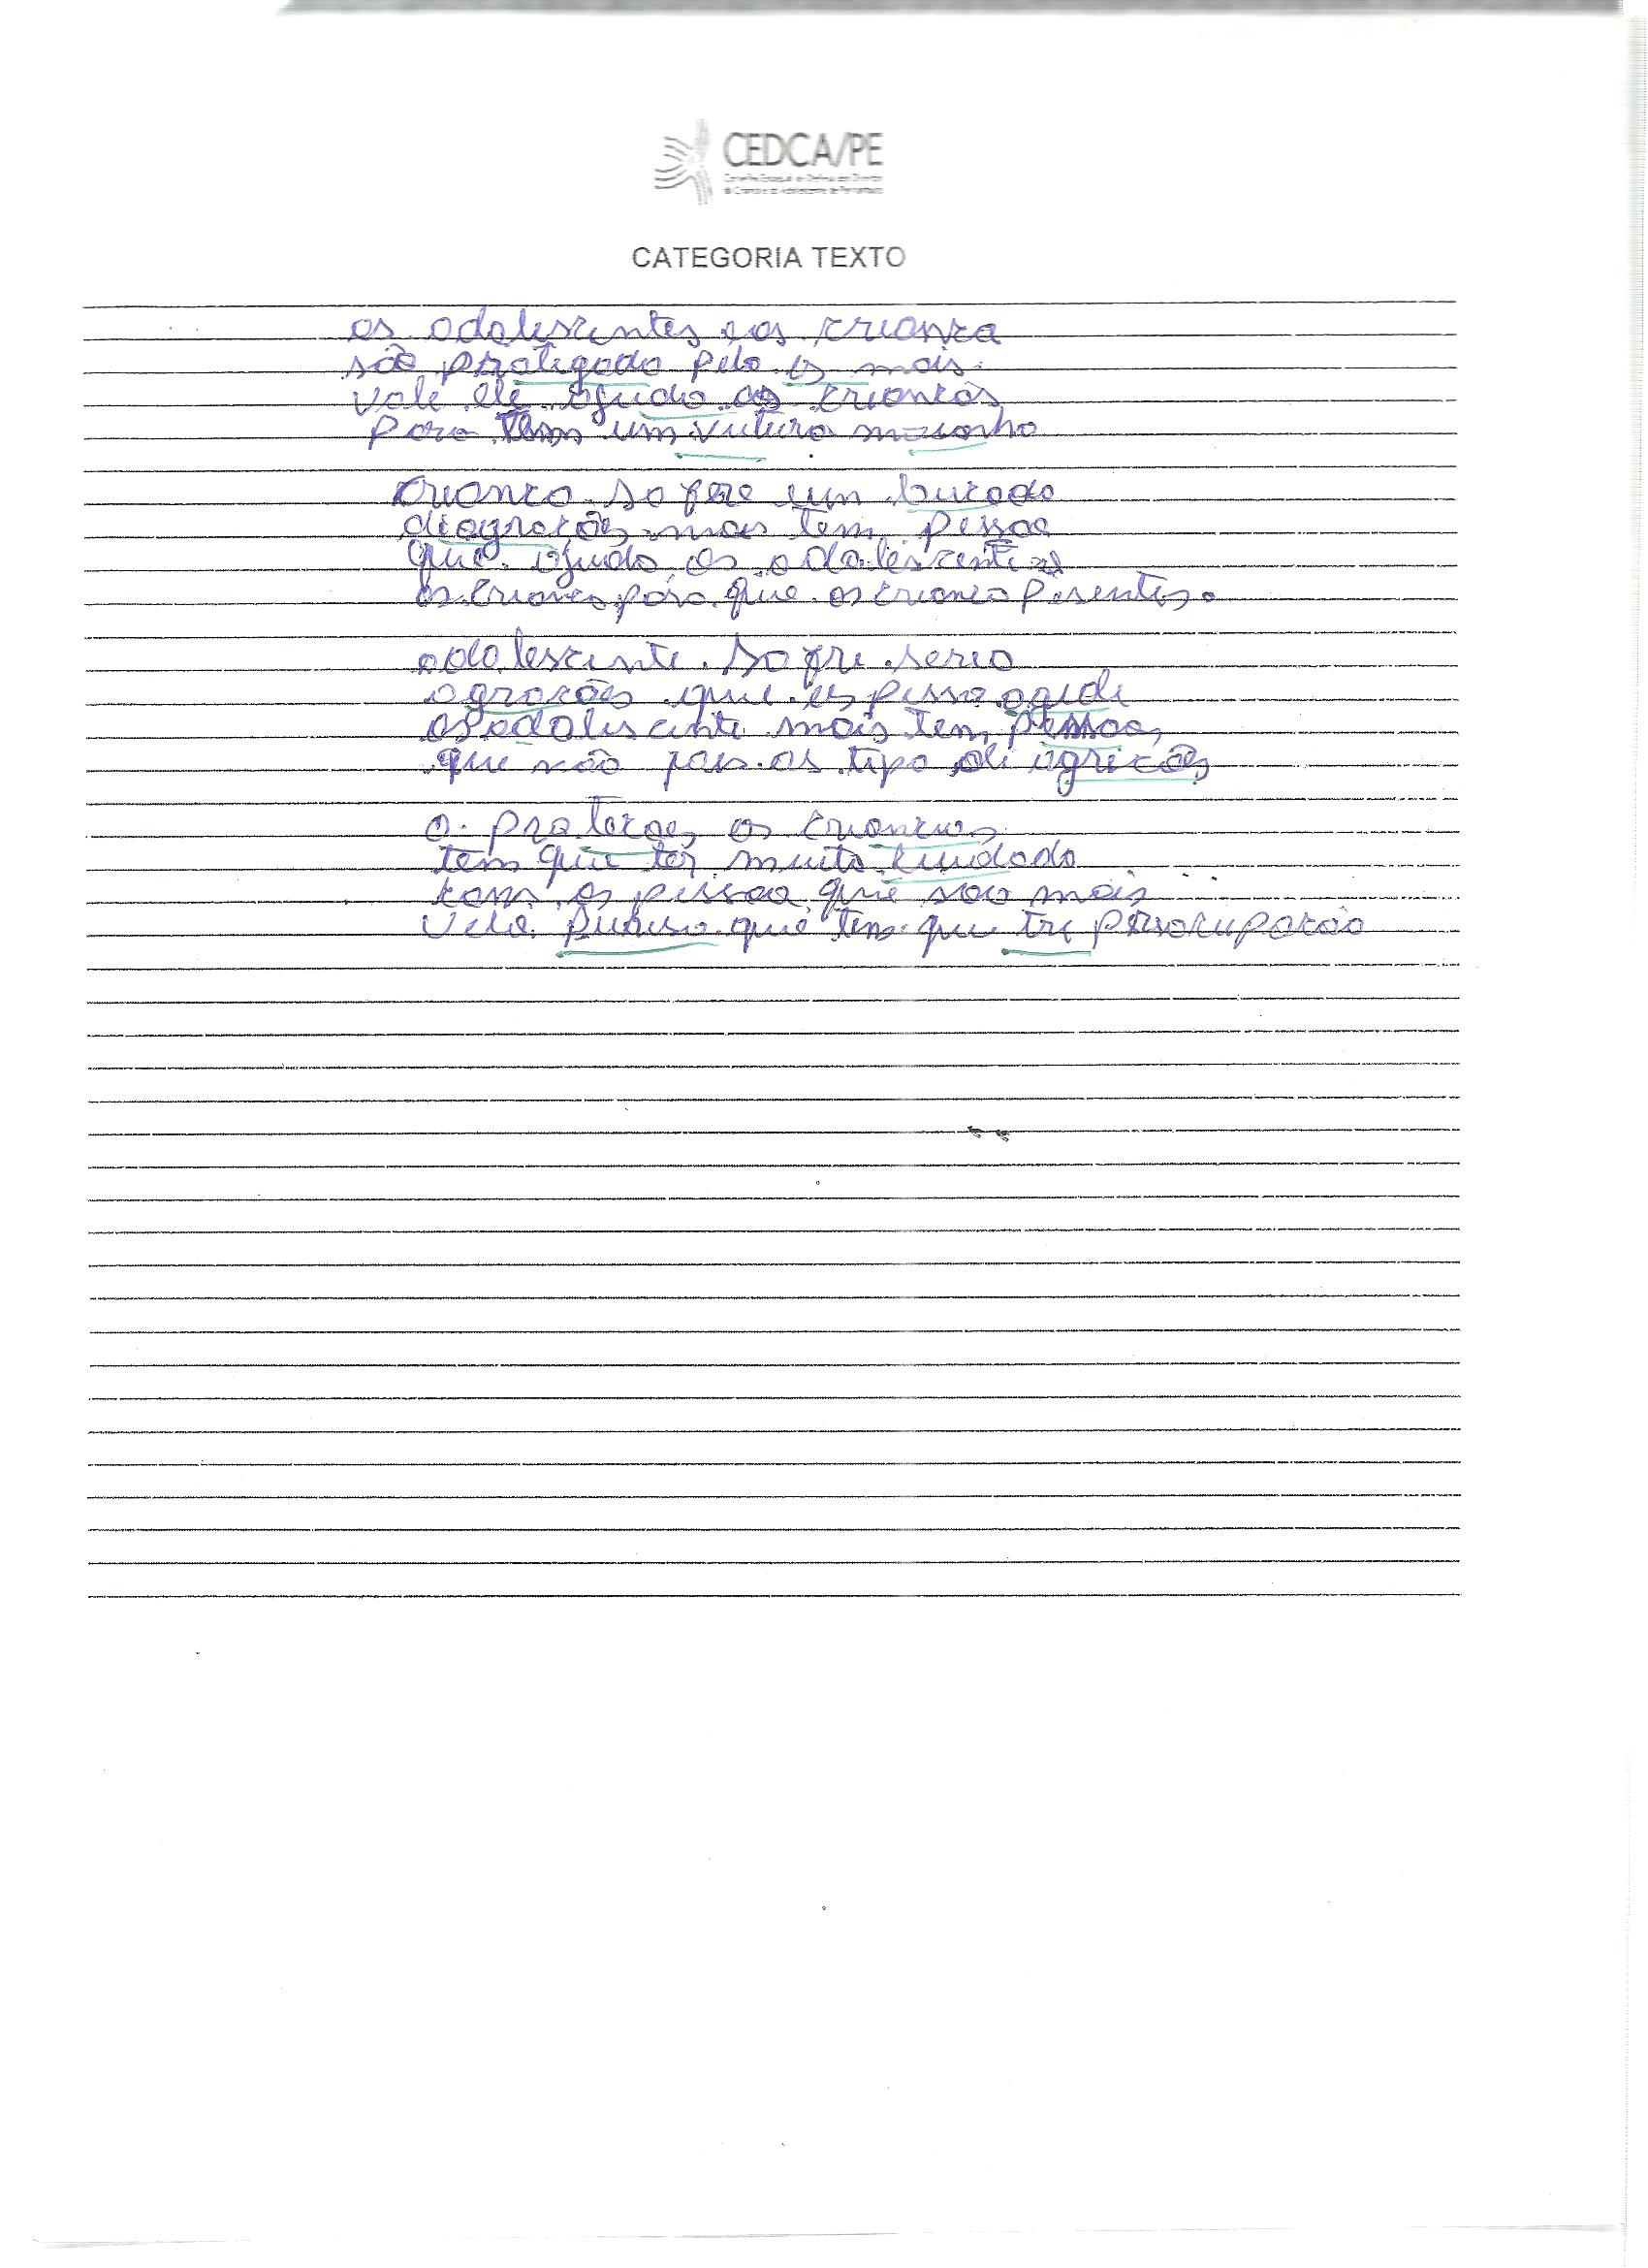 CEDCA/PE
Conselho Estadual de Defesa dos Direitos
da Criança e do Adolescente de Pernambuco
CATEGORIA TEXTO
os adolescentes e as crianca
são protegado pelo os mais
vale ele ajuda as criancas
para tem um vuturo
crianca sofre um bucado
diagracões mas tem pessoa
que ajuda os adolescente
as crianca para que as crianca
adolescente sofre serio
agracões que as pessoa agide
os adolescente mais tem pessoa
que não faz os tipo di agricões
a protecoes as
tem que ter muito cuidado
com as pessoa que são mais
velo que tem que tre